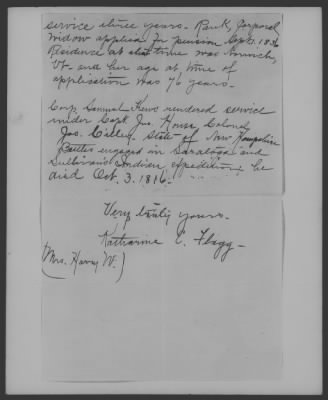 service three years. Rank, Corporal
Widow applied for pension Sept. 1836
Residence at that time was Norwich,
Vt. and her age at time of
application was 76 years.
Corp. Samuel rendered service
under Capt. Jas. House, Colonel
Jos. Cilley, State of New Hampshire
Battles engaged in Saratoga and
Sullivan's Indian expedition, he
died Oct. 3. 1816.
Very truly yours.
Katharine C. Flagg
(Mrs. Harry W.)